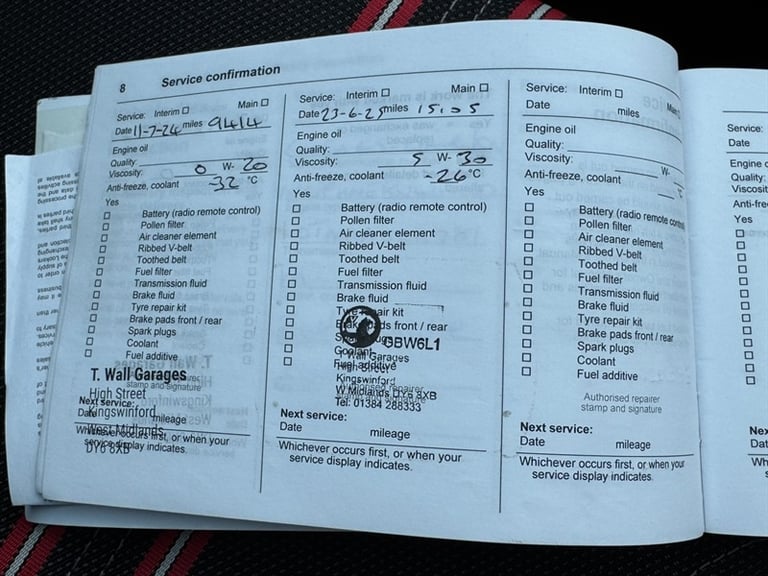 8 Service confirmation
Service: Interim ☐ Main ☐
Date 11-7-24 miles 9414
Engine oil
Quality:
Viscosity: 0 W- 20
Anti-freeze, coolant -32 °C
Yes
☐ Battery (radio remote control)
☐ Pollen filter
☐ Air cleaner element
☐ Ribbed V-belt
☐ Toothed belt
☐ Fuel filter
☐ Transmission fluid
☐ Brake fluid
☐ Tyre repair kit
☐ Brake pads front / rear
☐ Spark plugs
☐ Coolant
☐ Fuel additive
T. Wall Garages
stamp and signature
High Street
Next service:
Kingswinford
Date mileage
West Midlands
Whichever occurs first, or when your
service display indicates.
DY6 8XB
Service: Interim ☐ Main ☐
Date 23-6-25 miles
Engine oil
Quality:
Viscosity: 5 W- 30
Anti-freeze, coolant -26 °C
Yes
☐ Battery (radio remote control)
☐ Pollen filter
☐ Air cleaner element
☐ Ribbed V-belt
☐ Toothed belt
☐ Fuel filter
☐ Transmission fluid
☐ Brake fluid
☐ Tyre repair kit
☐ Brake pads front / rear
☐ Spark plugs
☐ Coolant
☐ Fuel additive
3BW6L1
Wall Garages
High Street
Kingswinford
W Midlands DY6 8XB
Tel: 01384 288333
Next service:
Date mileage
Whichever occurs first, or when your
service display indicates.
Service: Interim ☐ Main ☐
Date miles
Engine oil
Quality:
Viscosity: W-
Anti-freeze, coolant °C
Yes
☐ Battery (radio remote control)
☐ Pollen filter
☐ Air cleaner element
☐ Ribbed V-belt
☐ Toothed belt
☐ Fuel filter
☐ Transmission fluid
☐ Brake fluid
☐ Tyre repair kit
☐ Brake pads front / rear
☐ Spark plugs
☐ Coolant
☐ Fuel additive
Authorised repairer
stamp and signature
Next service:
Date mileage
Whichever occurs first, or when your
service display indicates.
Service:
Date
Engine
Quality:
Yes
Date